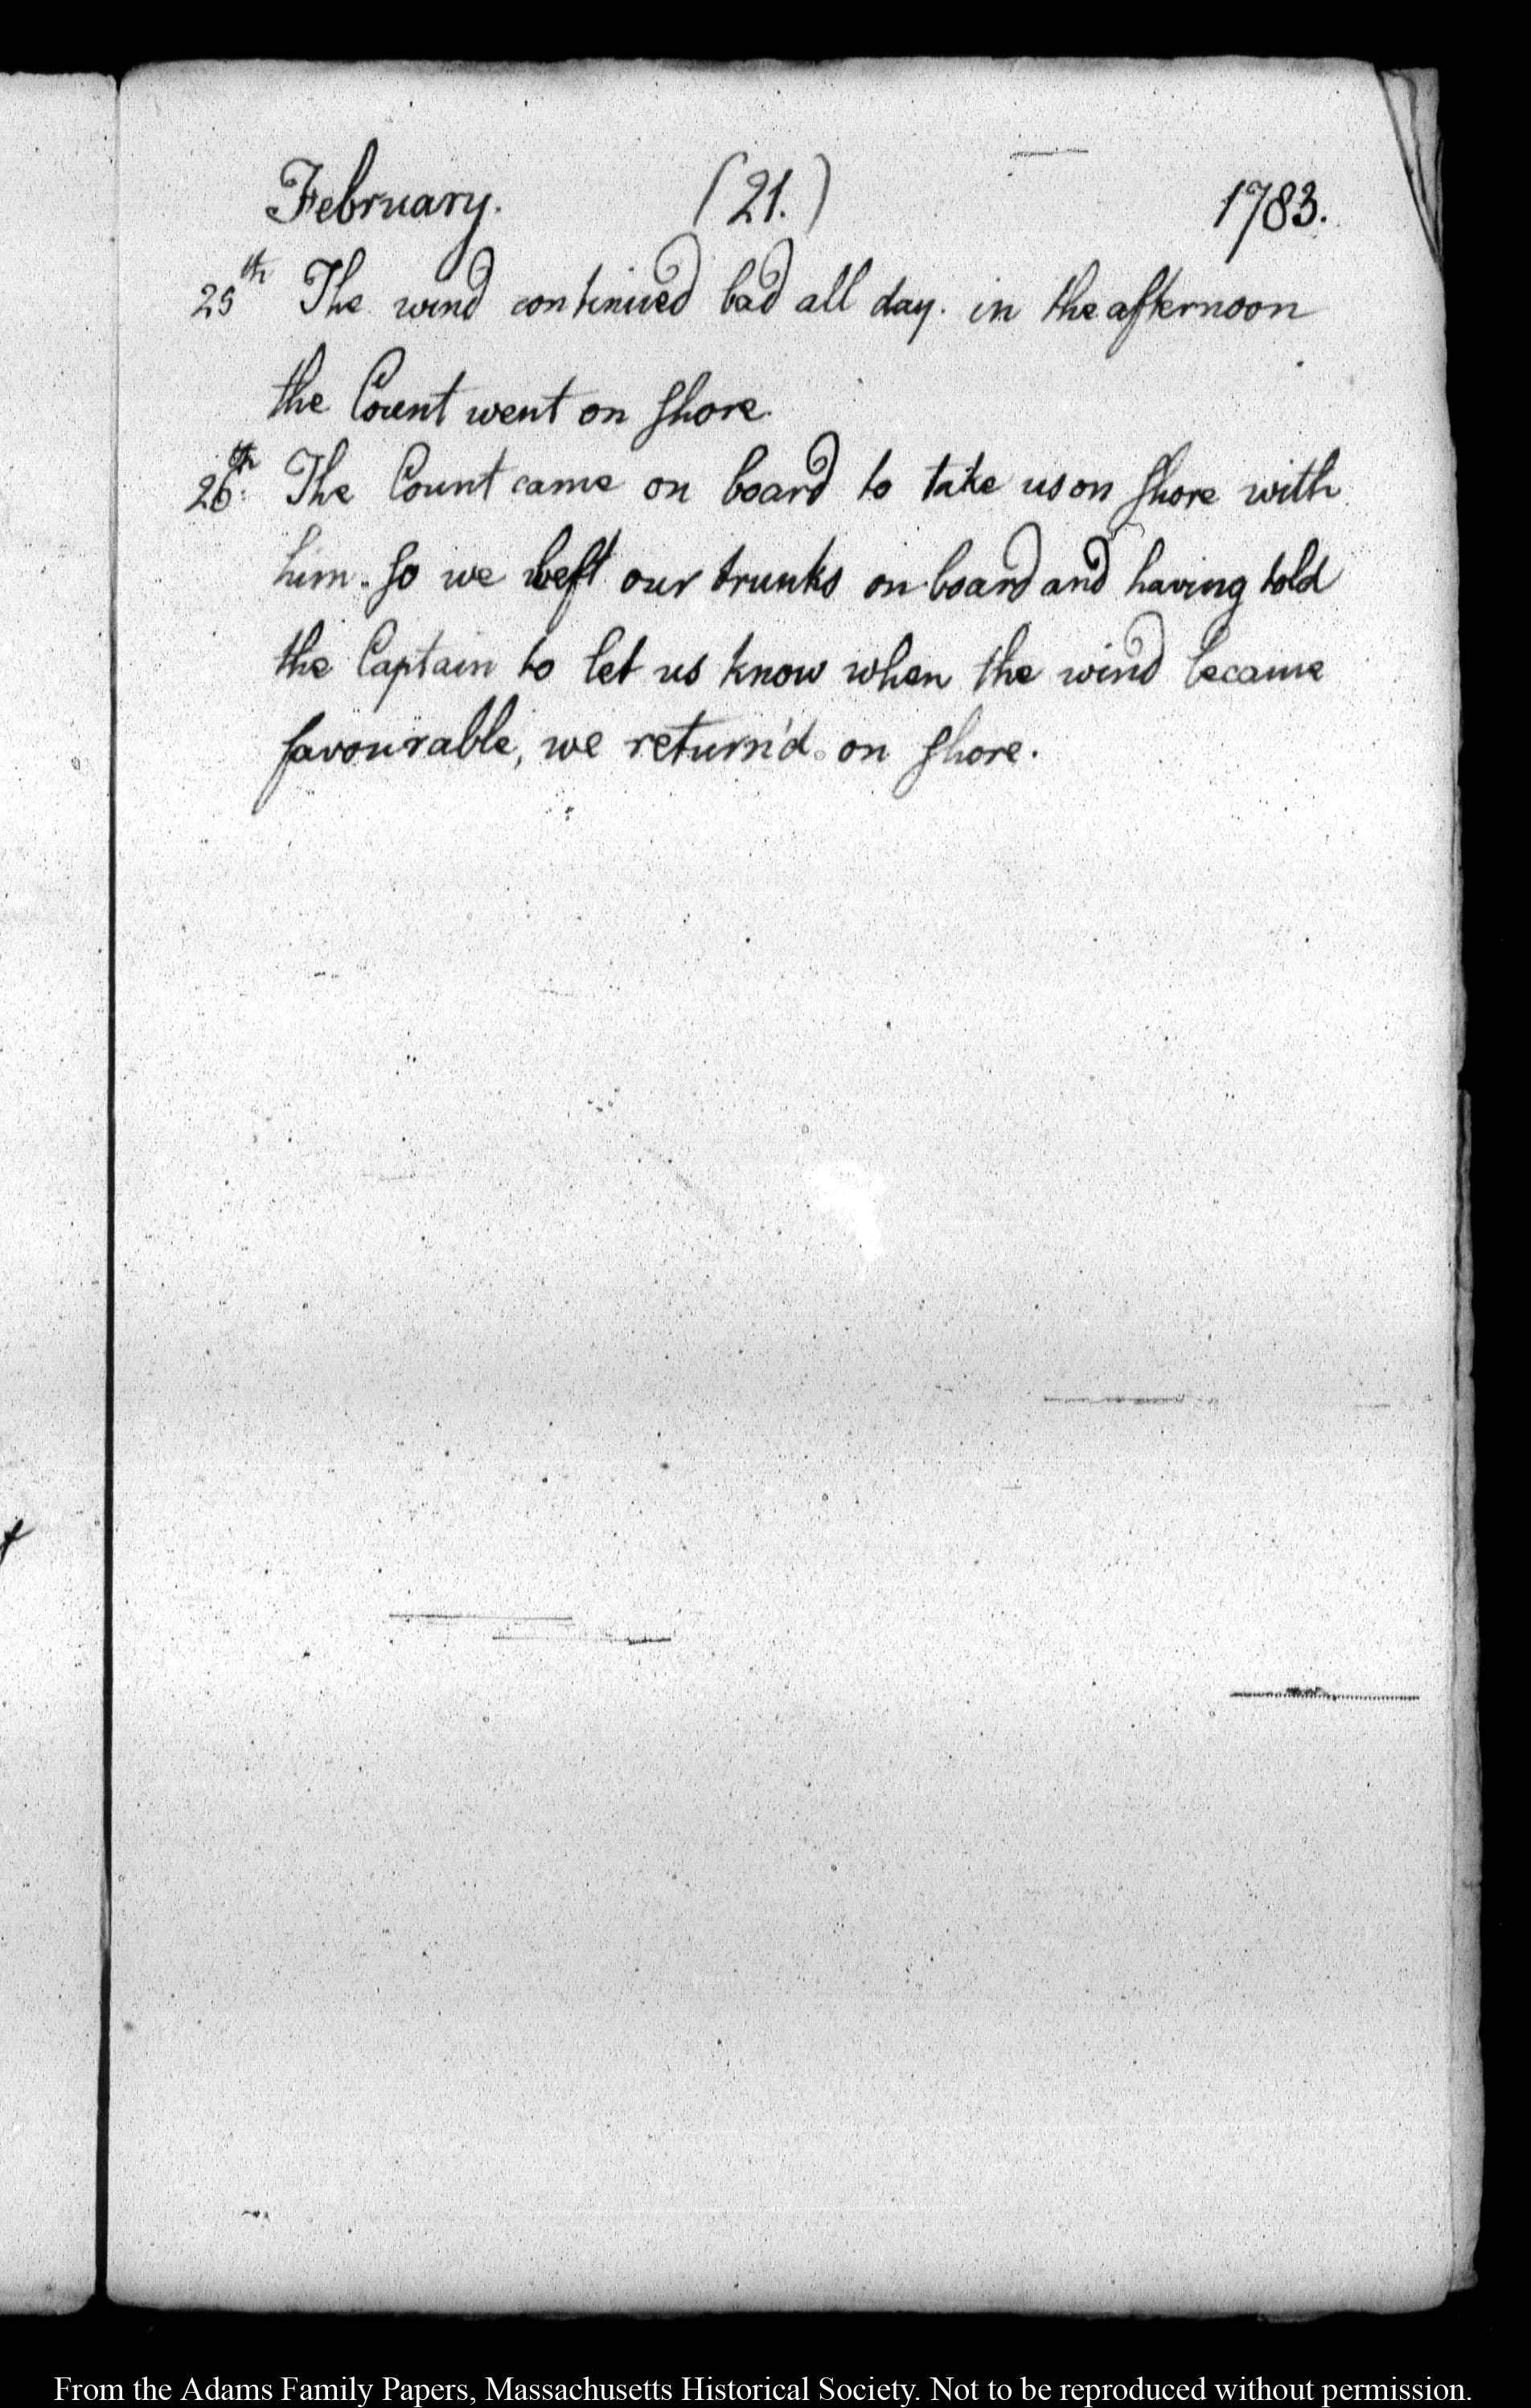 February. (21.) 1783.
25th The wind continued bad all day. in the afternoon
the Count went on shore.
26th: The Count came on board to take us on shore with
him. so we left our trunks on board and having told
the Captain to let us know when the wind became
favourable, we return'd on shore.
From the Adams Family Papers, Massachusetts Historical Society. Not to be reproduced without permission.